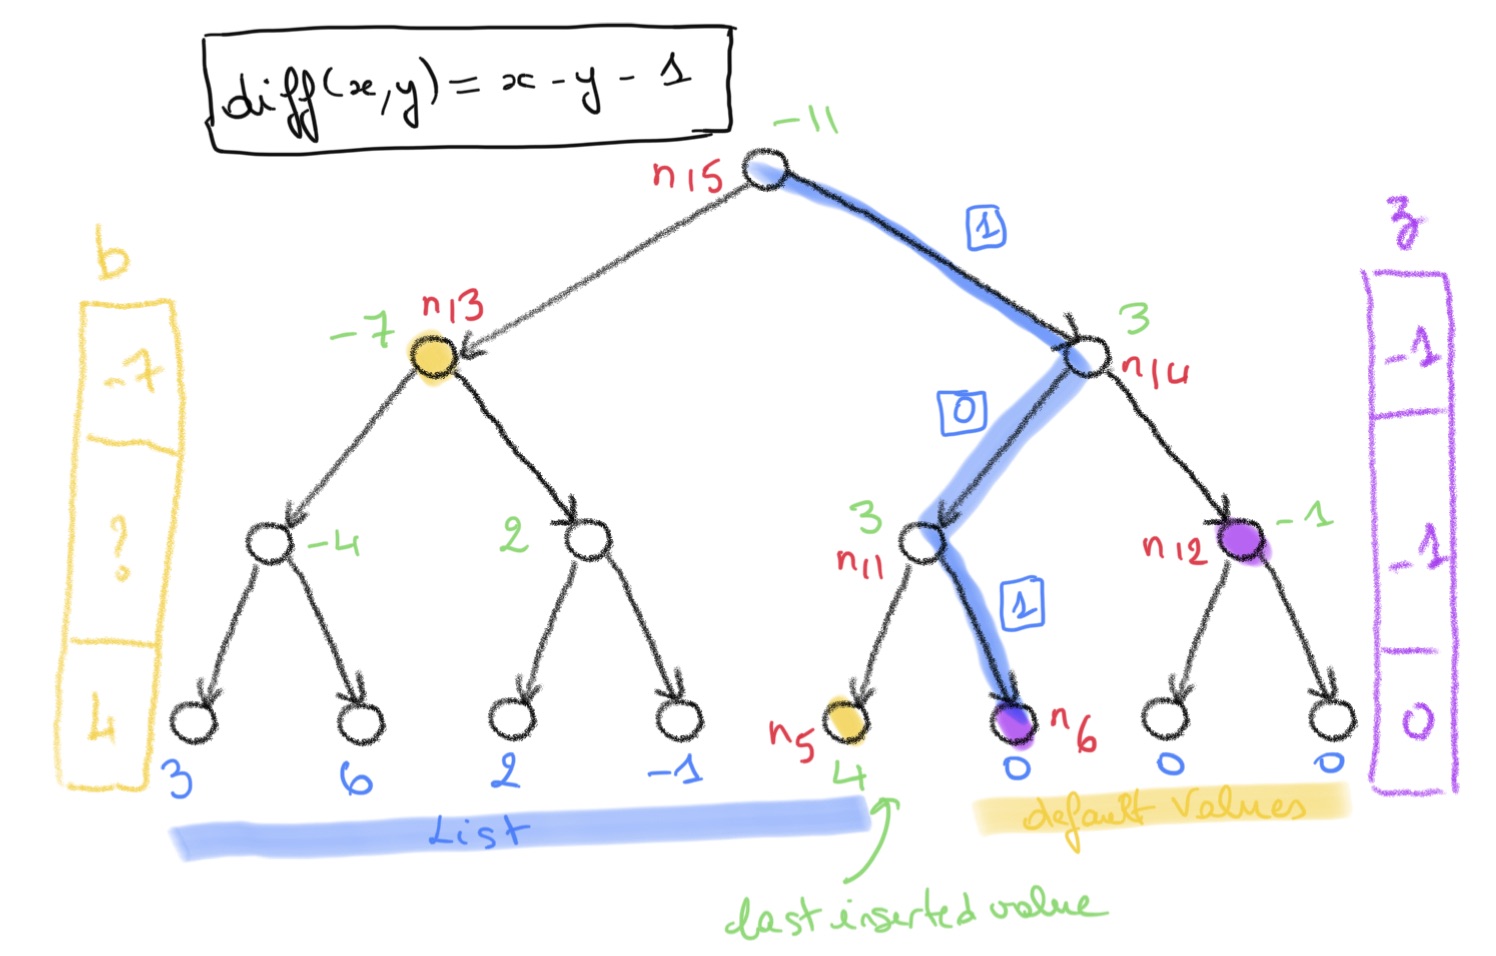 diff(x,y) = x - y - 1
-11
n15
1
b
z
n13
-7
3
n14
-7
0
-1
?
-4
2
3
n11
1
n12
-1
-1
4
n5
n6
0
3
6
2
-1
4
0
0
0
List
default values
last inserted value